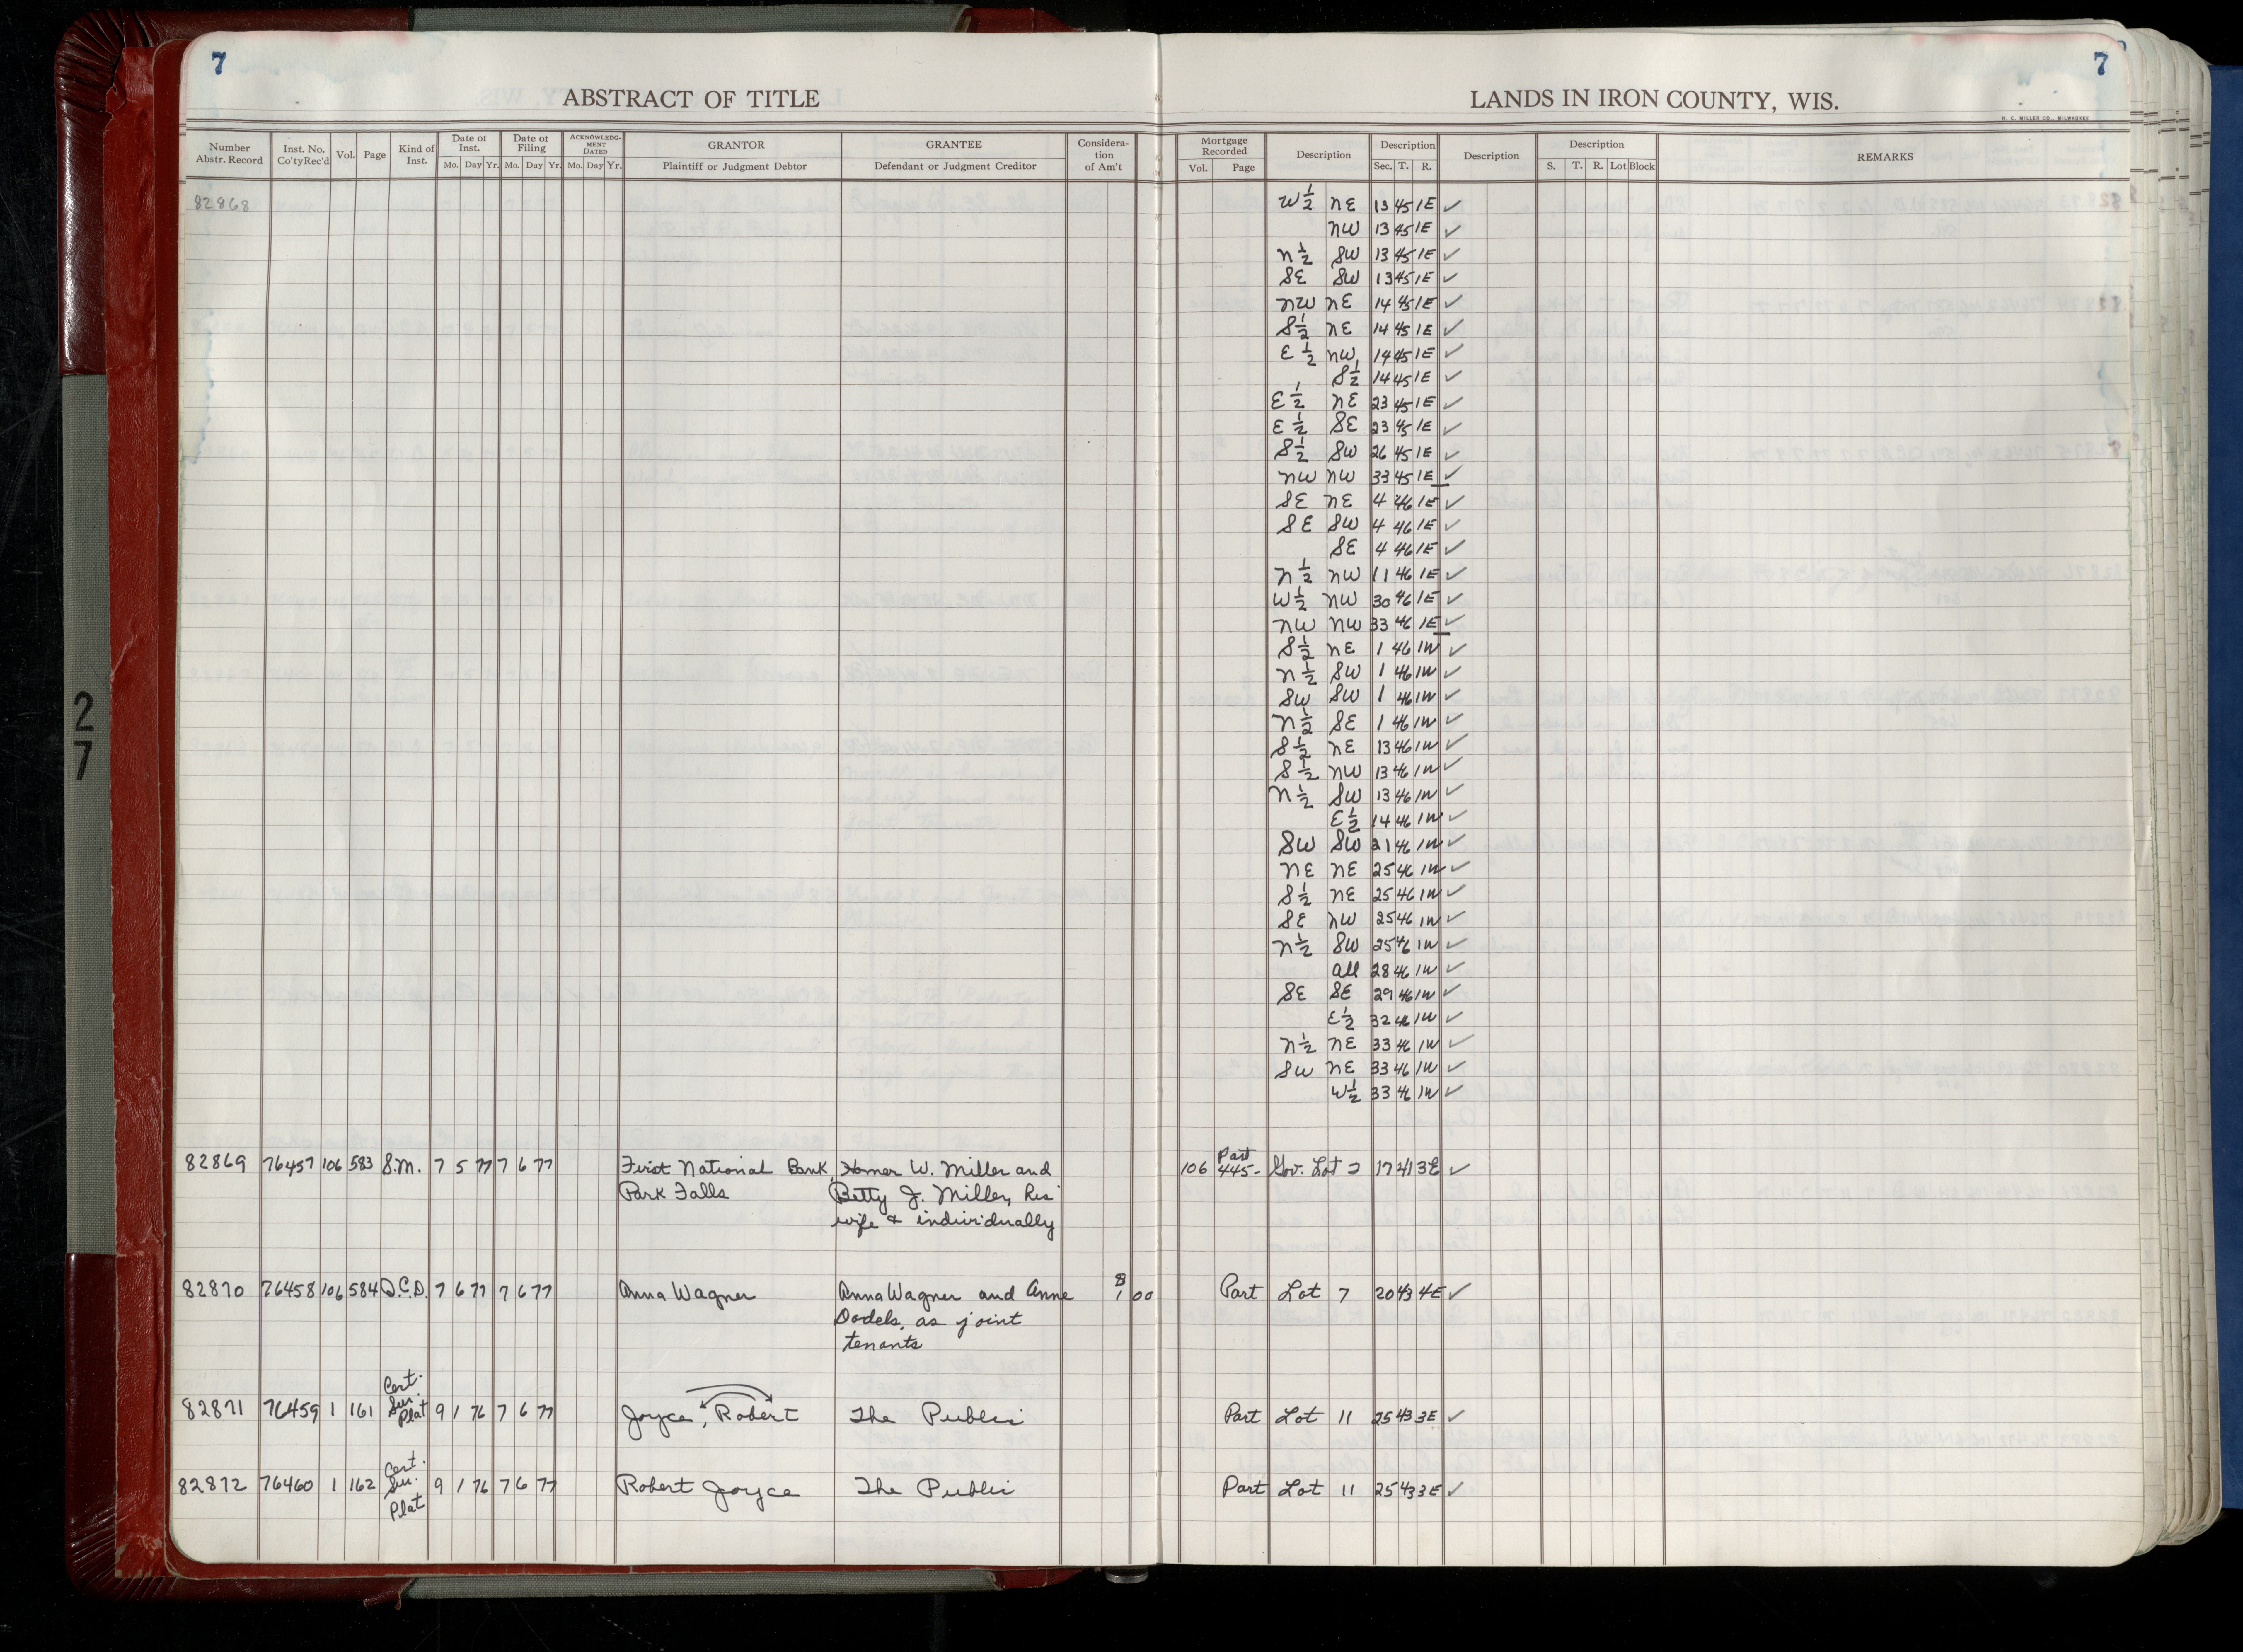 7
7
ABSTRACT OF TITLE
LANDS IN IRON COUNTY, WIS.
H. C. MILLER CO., MILWAUKEE
Number Abstr. Record | Inst. No. Co'ty Rec'd | Vol. | Page | Kind of Inst. | Date of Inst. Mo. Day Yr. | Date of Filing Mo. Day Yr. | ACKNOWLEDGMENT DATED Mo. Day Yr. | GRANTOR Plaintiff or Judgment Debtor | GRANTEE Defendant or Judgment Creditor | Consideration of Am't | Mortgage Recorded Vol. Page | Description | Description Sec. T. R. | Description | Description S. T. R. Lot Block | REMARKS
82868 W½ NE 13 45 1E ✓
NW 13 45 1E ✓
N½ SW 13 45 1E ✓
SE SW 13 45 1E ✓
NW NE 14 45 1E ✓
S½ NE 14 45 1E ✓
E½ NW 14 45 1E ✓
S½ 14 45 1E ✓
E½ NE 23 45 1E ✓
E½ SE 23 45 1E ✓
S½ SW 26 45 1E ✓
NW NW 33 45 1E ✓
SE NE 4 46 1E ✓
SE SW 4 46 1E ✓
SE 4 46 1E ✓
N½ NW 11 46 1E ✓
W½ NW 30 46 1E ✓
NW NW 33 46 1E ✓
S½ NE 1 46 1W ✓
N½ SW 1 46 1W ✓
SW SW 1 46 1W ✓
N½ SE 1 46 1W ✓
S½ NE 13 46 1W ✓
S½ NW 13 46 1W ✓
N½ SW 13 46 1W ✓
E½ 14 46 1W ✓
SW SW 21 46 1W ✓
NE NE 25 46 1W ✓
S½ NE 25 46 1W ✓
SE NW 25 46 1W ✓
N½ SW 25 46 1W ✓
all 28 46 1W ✓
SE SE 29 46 1W ✓
E½ 32 46 1W ✓
N½ NE 33 46 1W ✓
SW NE 33 46 1W ✓
W½ 33 46 1W ✓
82869 76457 106 583 S.M. 7 5 77 7 6 77 First National Bank, Homer W. Miller and 106 445- Part Gov. Lot 2 17 41 3E ✓
Park Falls Betty J. Miller, his
wife & individually
82870 76458 106 584 Q.C.D. 7 6 77 7 6 77 Anna Wagner Anna Wagner and Anne $1 00 Part Lot 7 20 43 4E ✓
Dodels, as joint
tenants
Cert.
82871 76459 1 161 Sur. Plat 9 1 76 7 6 77 Joyce, Robert The Public Part Lot 11 25 43 3E ✓
Cert.
82872 76460 1 162 Su. 9 1 76 7 6 77 Robert Joyce The Public Part Lot 11 25 43 3E ✓
Plat
27